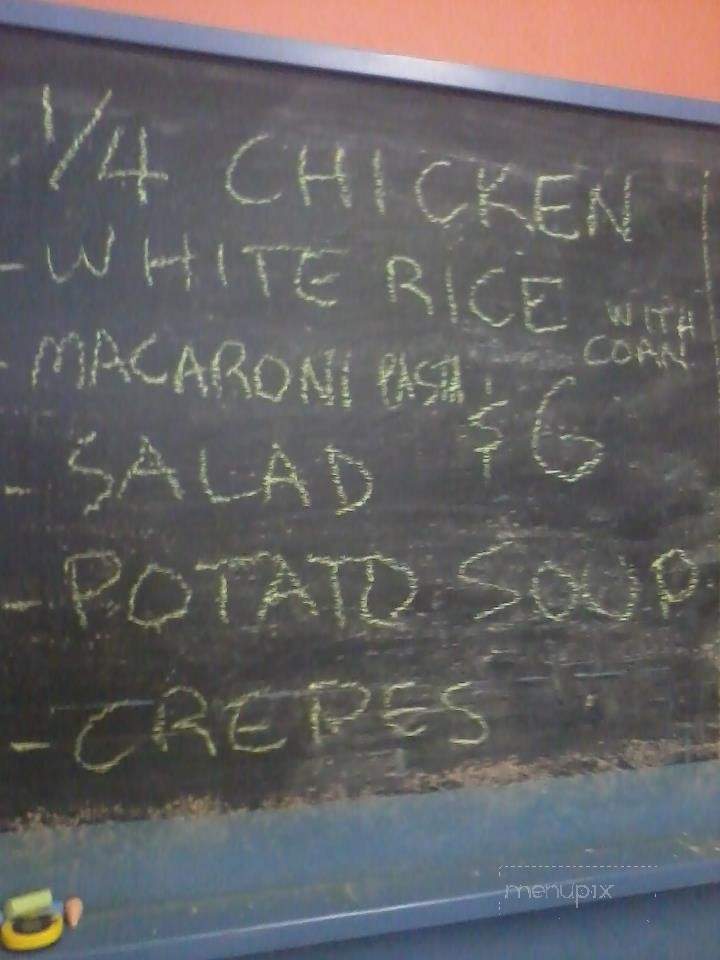 1/4 CHICKEN
- WHITE RICE WITH CORN
- MACARONI PASTA $6
- SALAD
- POTATO SOUP
- CREPES
menupix